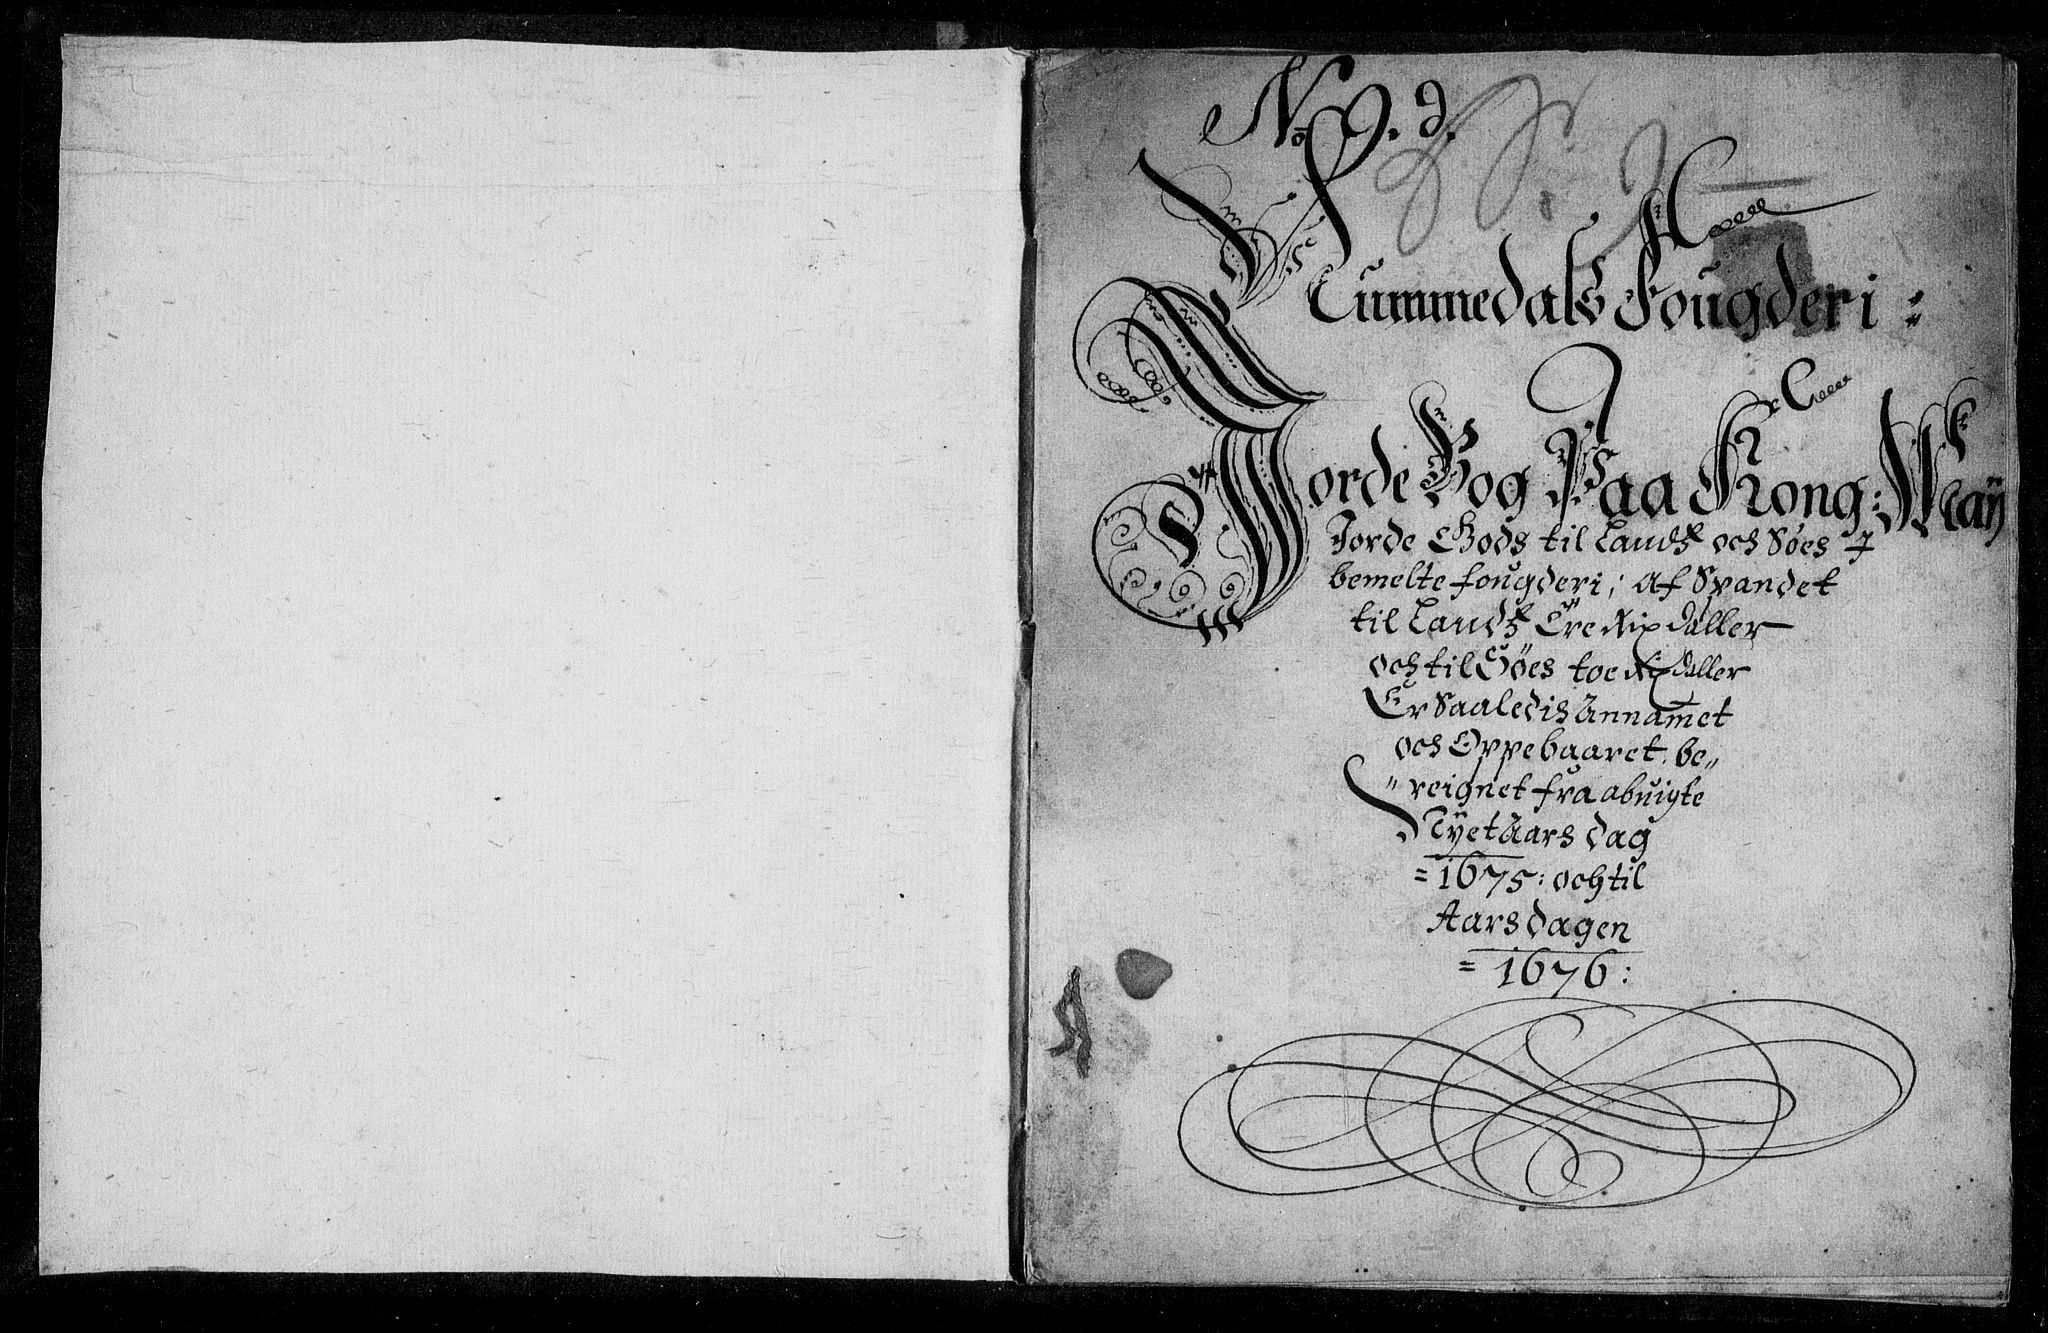 No 9. 9.
Nummedals Fougderi
Jorde Bog Paa Kong: May
Jorde Gods til Landz och Söes J
bemelte fougderi; Af Spandet
til Landz Tre Rix Daller
och til Söes toe Rix Daller
Er Saaledis Annamet
och Oppebaaret, be„
„reignet fra abuigte
Nyet Aars dag
= 1675: och til
Aarsdagen
= 1676: